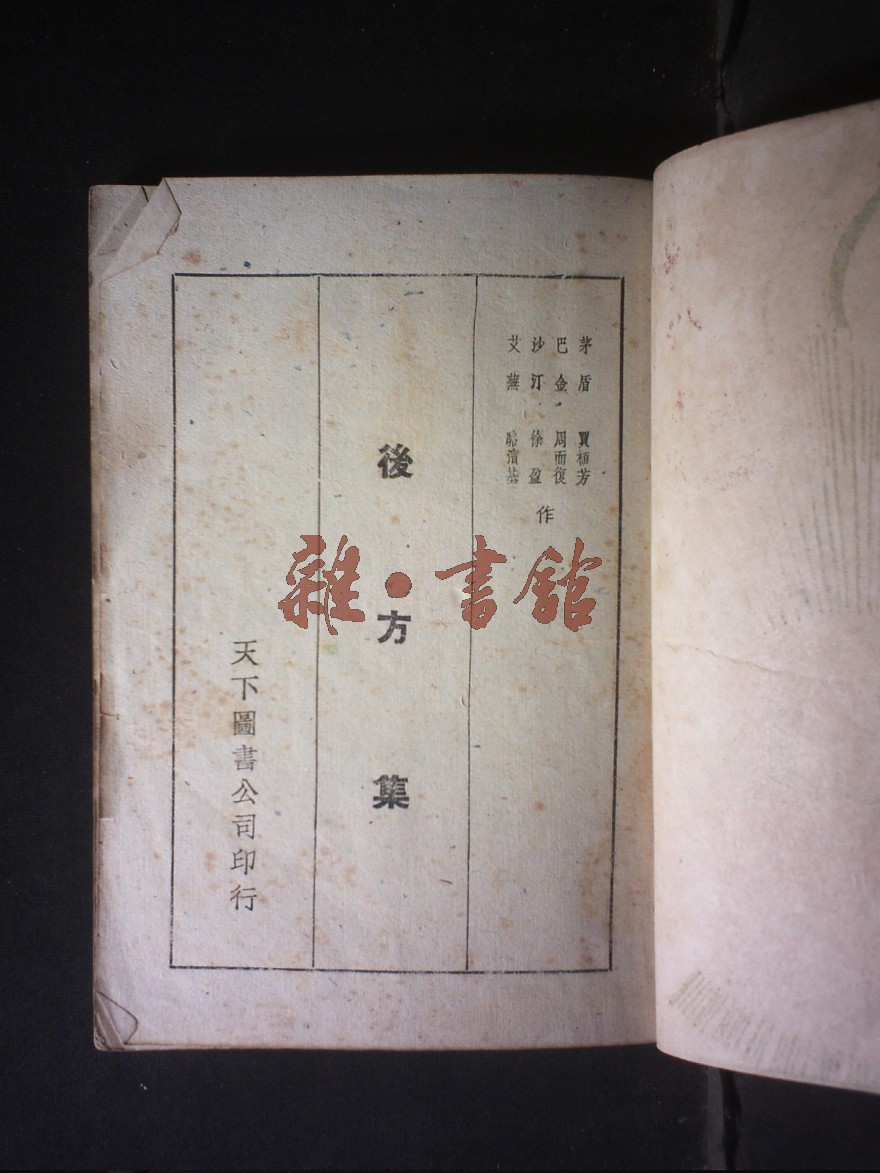 茅盾 賈植芳
巴金 周而復
沙汀 徐盈
艾蕪 駱賓基
作
後方集
天下圖書公司印行
雜·書館